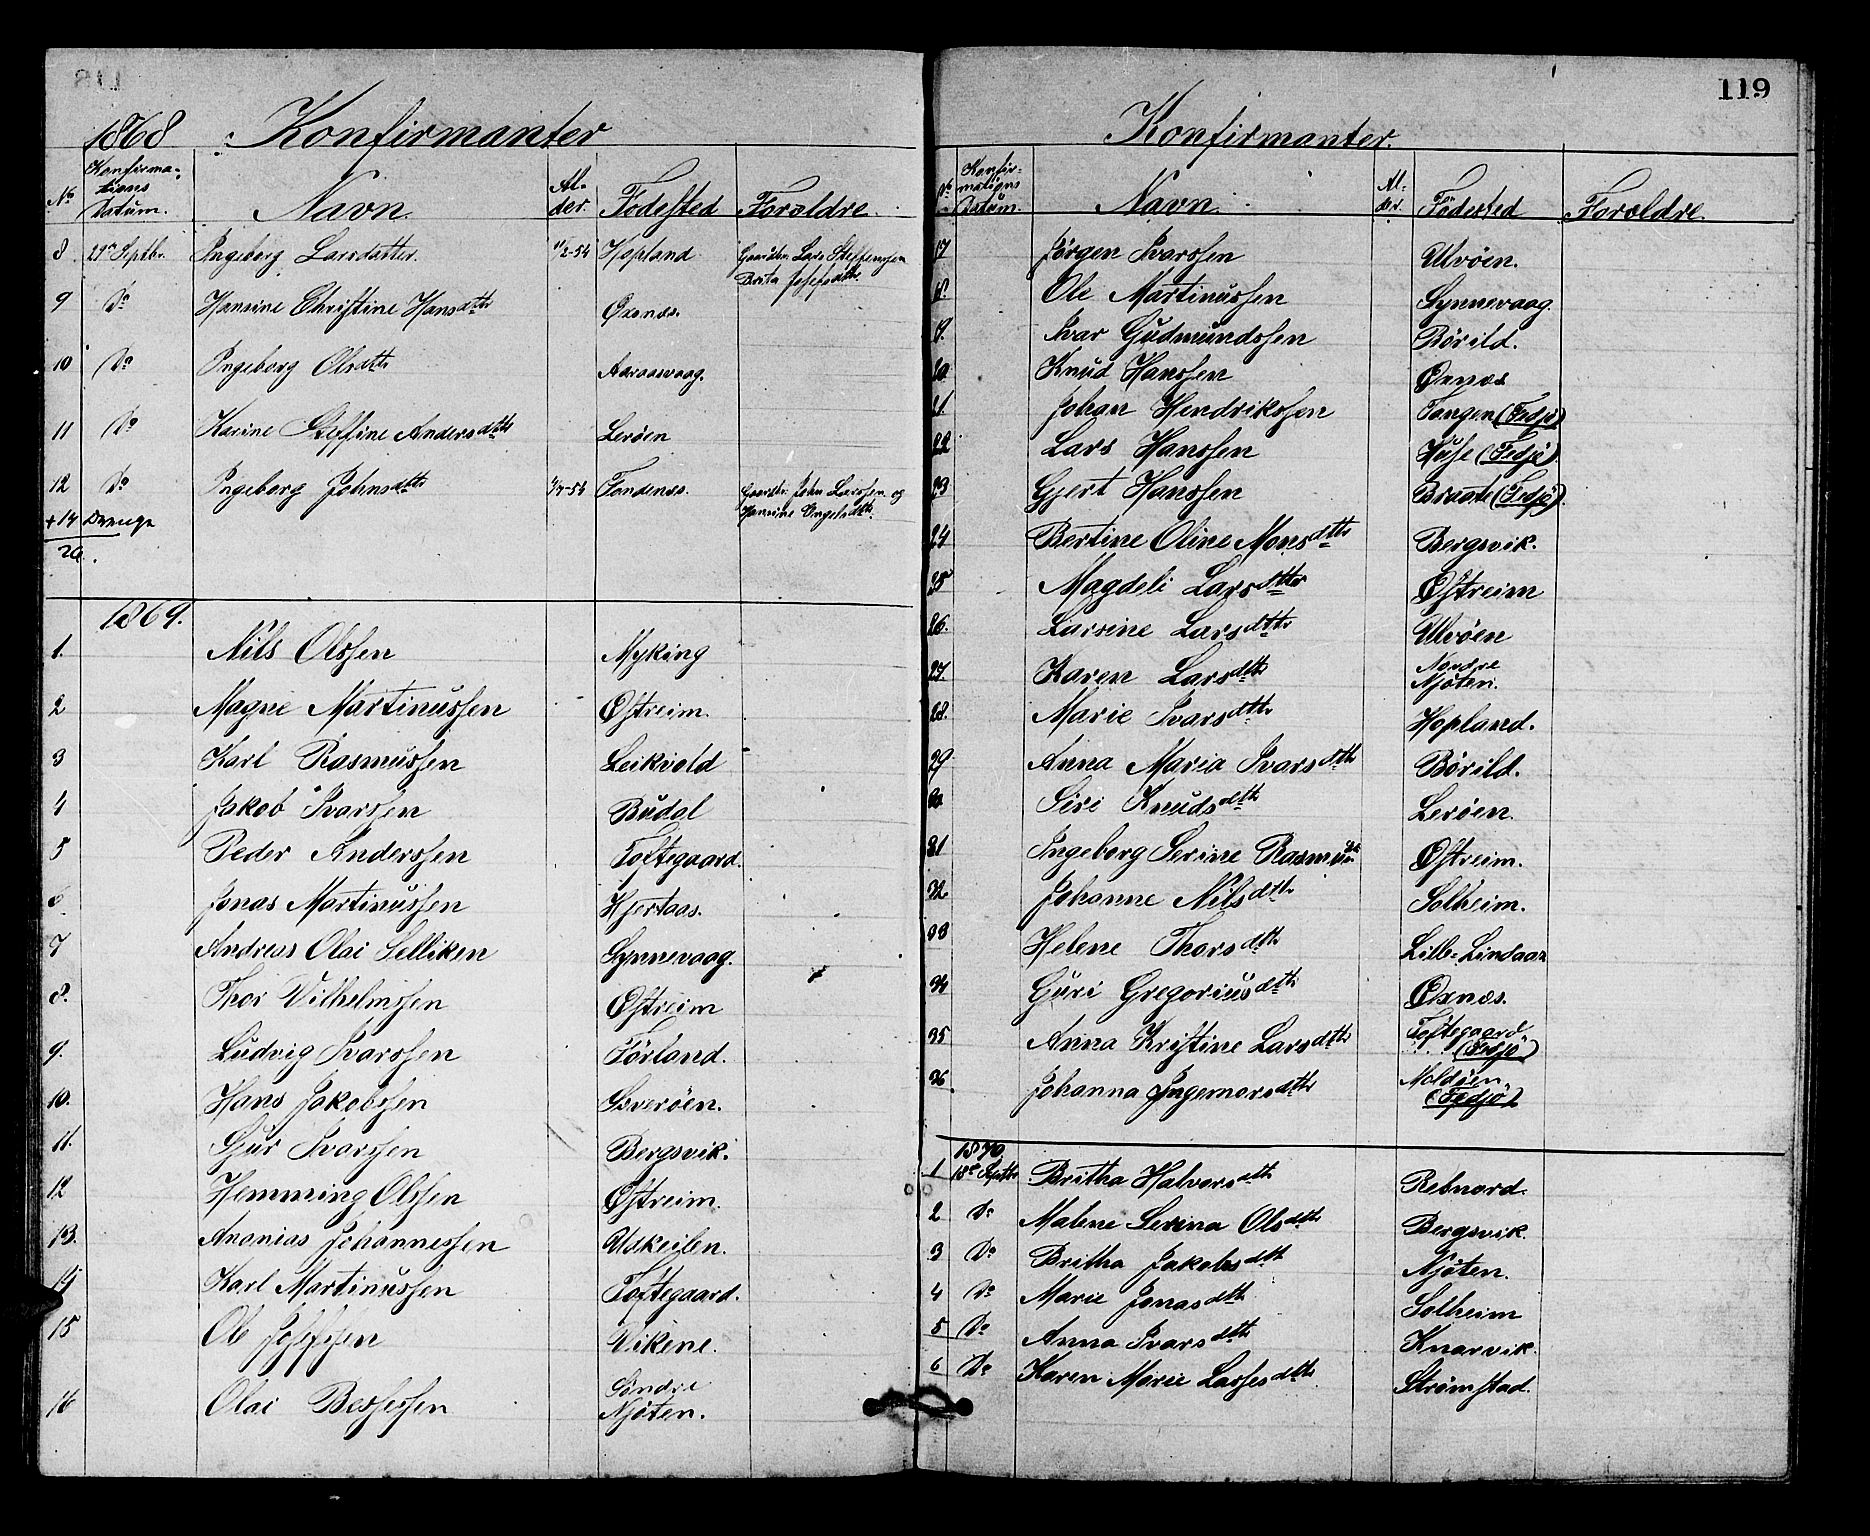 1868 Konfirmanter
No Konfirmations Datum. Navn. Alder. Födested Forældre.
8 29de Septbr. Ingeborg Larsdatter. 11/2-54 Hopland Gaardbr. Lars Steffensen
Brita Josefsdttr.
9 Do Hansine Christine Hansdttr Øxnæs.
10 Do Ingeborg Olsdttr Aaraasvaag.
11 Do Karine Steffine Andersdttr Leröen
12 Do Ingeborg Johnsdttr 4/7-54 Fondenæs. Gaardbr. John Larssen og
Hansine Engelsdttr.
+ 14 Drenge
26.
1869.
1. Nils Olssen Myking
2 Magne Martinussen Østreim.
3 Karl Rasmussen Leikvold
4 Jakob Ivarssen Budal
5 Peder Anderssen Toftegaard.
6 Jonas Martinussen Hjertaas.
7 Andreas Olai Selliken Synnevaag.
8. Thor Vilhelmssen Østreim
9. Ludvig Ivarssen Förland.
10. Hans Jakobssen Sveröen.
11. Sjur Ivarssen Bergsvik.
12 Hemming Olssen Østreim.
13. Ananias Johannessen Udkeilen.
14 Karl Martinussen Toftegaard.
15 Ole Josefsen Vikene.
16 Olai Bessessen Söndre
Njöten.
119
Konfirmanter.
No Konfirmations Datum. Navn. Alder. Födested Forældre.
17 Jörgen Ivarssen Ulvöen.
18. Ole Martinussen Synnevaag.
19. Ivar Gudmundssen Börild.
20 Knud Hanssen Øxnæs
21. Johan Hendrikssen Tangen (Fedjö)
22 Lars Hanssen Huse (Fedjö)
23 Gjert Hanssen Braate (Fedjö).
24 Bertine Oline Monsdttr Bergsvik.
25 Magdeli Larsdttr Østreim
26. Larsine Larsdttr Ulvöen
27. Karen Larsdttr Nordre
Njöten.
28. Marie Ivarsdttr Hopland.
29 Anna Maria Ivarsdttr Börild.
30 Siri Knudsdttr Leröen.
31 Ingeborg Serine Rasmusdtr Østreim.
32. Johanne Nilsdttr Solheim.
33 Helene Thorsdttr Lille-Lindaas
34 Guri Gregoriusdttr Øxnæs.
35 Anna Kristine Larsdttr Toftegaard
(Fedjö)
36 Johanna Ingemorsdttr Moldöen
(Fedjö)
1870.
1 18de Septbr Britha Halvorsdttr Rebnord.
2 Do Malene Serina Olsdttr Bergsvik.
3 Do Britha Jakobsdttr Njöten.
4 Do Marie Jonasdttr Solheim
5 Do Anna Ivarsdttr Knarvik.
6 Do Karen Marie Lassesdttr Strömstad.